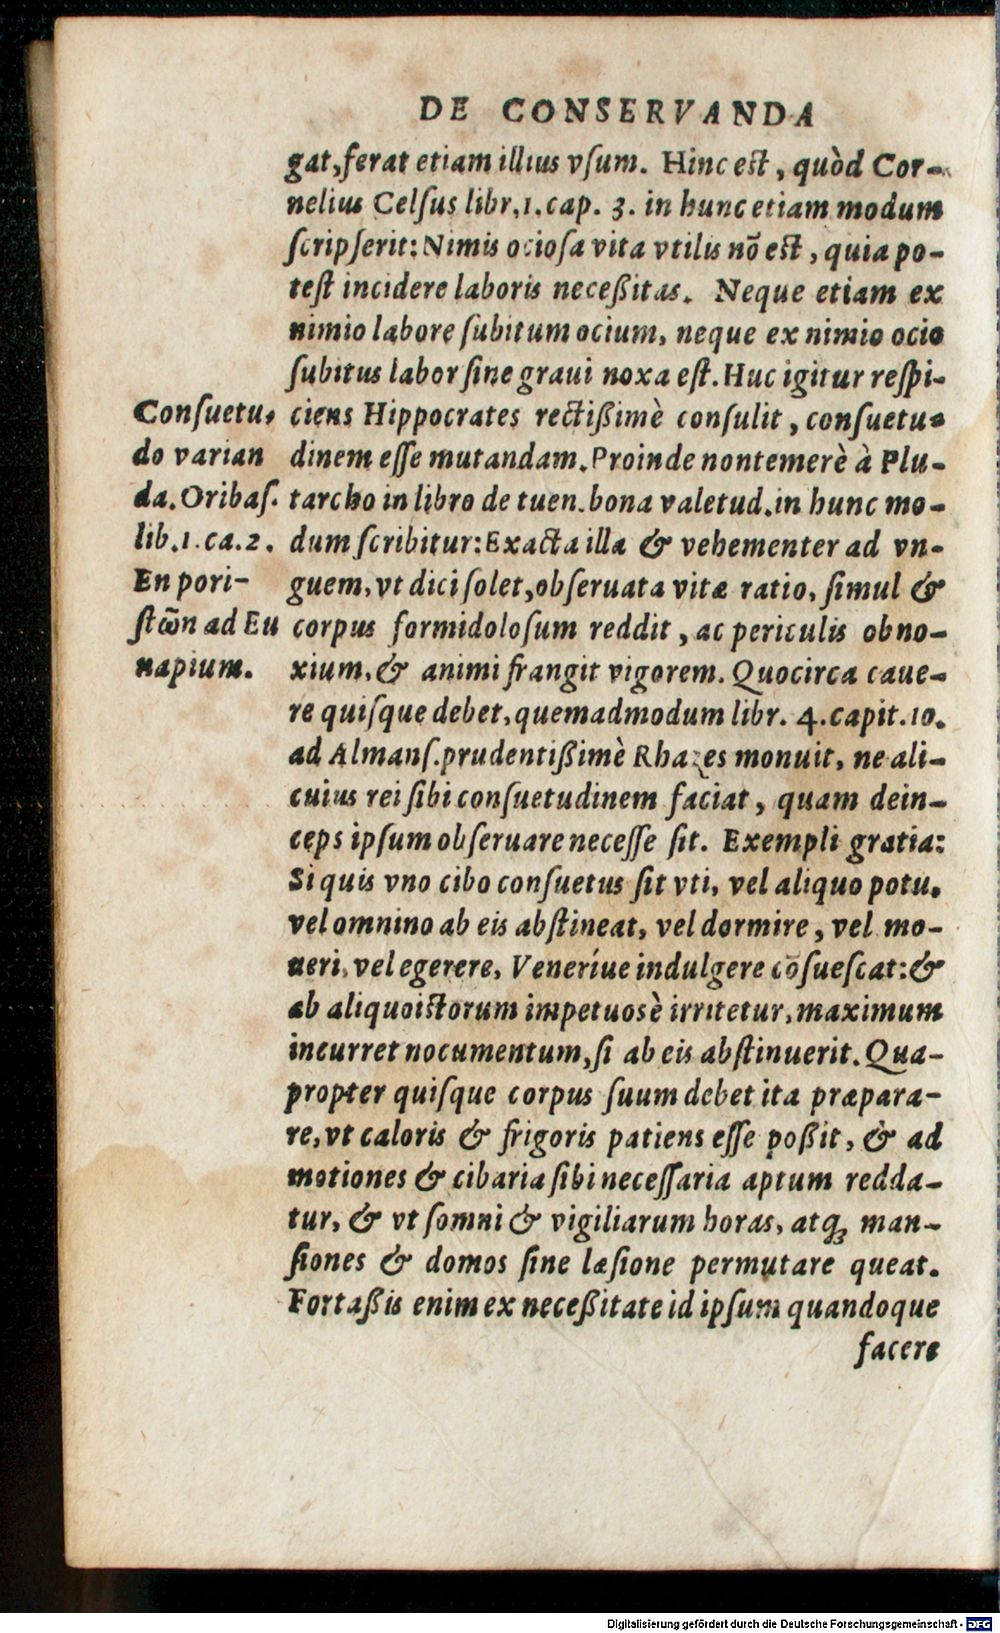 DE CONSERVANDA
gat, ferat etiam illius vſum. Hinc eſt, quòd Cor-
nelius Celſus libr.1.cap. 3. in hunc etiam modum
ſcripſerit: Nimis ocioſa vita vtilis nõ eſt, quia po-
teſt incidere laboris neceßitas. Neque etiam ex
nimio labore ſubitum ocium, neque ex nimio ocio
ſubitus labor ſine graui noxa eſt. Huc igitur reſpi-
ciens Hippocrates rectißimè conſulit, conſuetu-
dinem eſſe mutandam. Proinde non temerè à Plu-
tarcho in libro de tuen. bona valetud. in hunc mo-
dum ſcribitur: Exacta illa & vehementer ad vn-
guem, vt dici ſolet, obſeruata vitæ ratio, ſimul &
corpus formidoloſum reddit, ac periculis obno-
xium, & animi frangit vigorem. Quocirca caue-
re quiſque debet, quemadmodum libr. 4. capit.10.
ad Almanſ. prudentißimè Rhazes monuit, ne ali-
cuius rei ſibi conſuetudinem faciat, quam dein-
ceps ipſum obſeruare neceſſe ſit. Exempli gratia:
Si quis vno cibo conſuetus ſit vti, vel aliquo potu,
vel omnino ab eis abſtineat, vel dormire, vel mo-
ueri, vel egerere, Veneríue indulgere cõſueſcat: &
ab aliquo iſtorum impetuosè irritetur, maximum
incurret nocumentum, ſi ab eis abſtinuerit. Qua-
propter quiſque corpus ſuum debet ita præpara-
re, vt caloris & frigoris patiens eſſe poßit, & ad
motiones & cibaria ſibi neceſſaria aptum redda-
tur, & vt ſomni & vigiliarum horas, atq; man-
ſiones & domos ſine læſione permutare queat.
Fortaßis enim ex neceßitate id ipſum quandoque
facere
Conſuetu-
do varian
da. Oribaſ.
lib.1.ca.2.
En pori-
ſtω̃n ad Eu
napium.
Digitalisierung gefördert durch die Deutsche Forschungsgemeinschaft - DFG